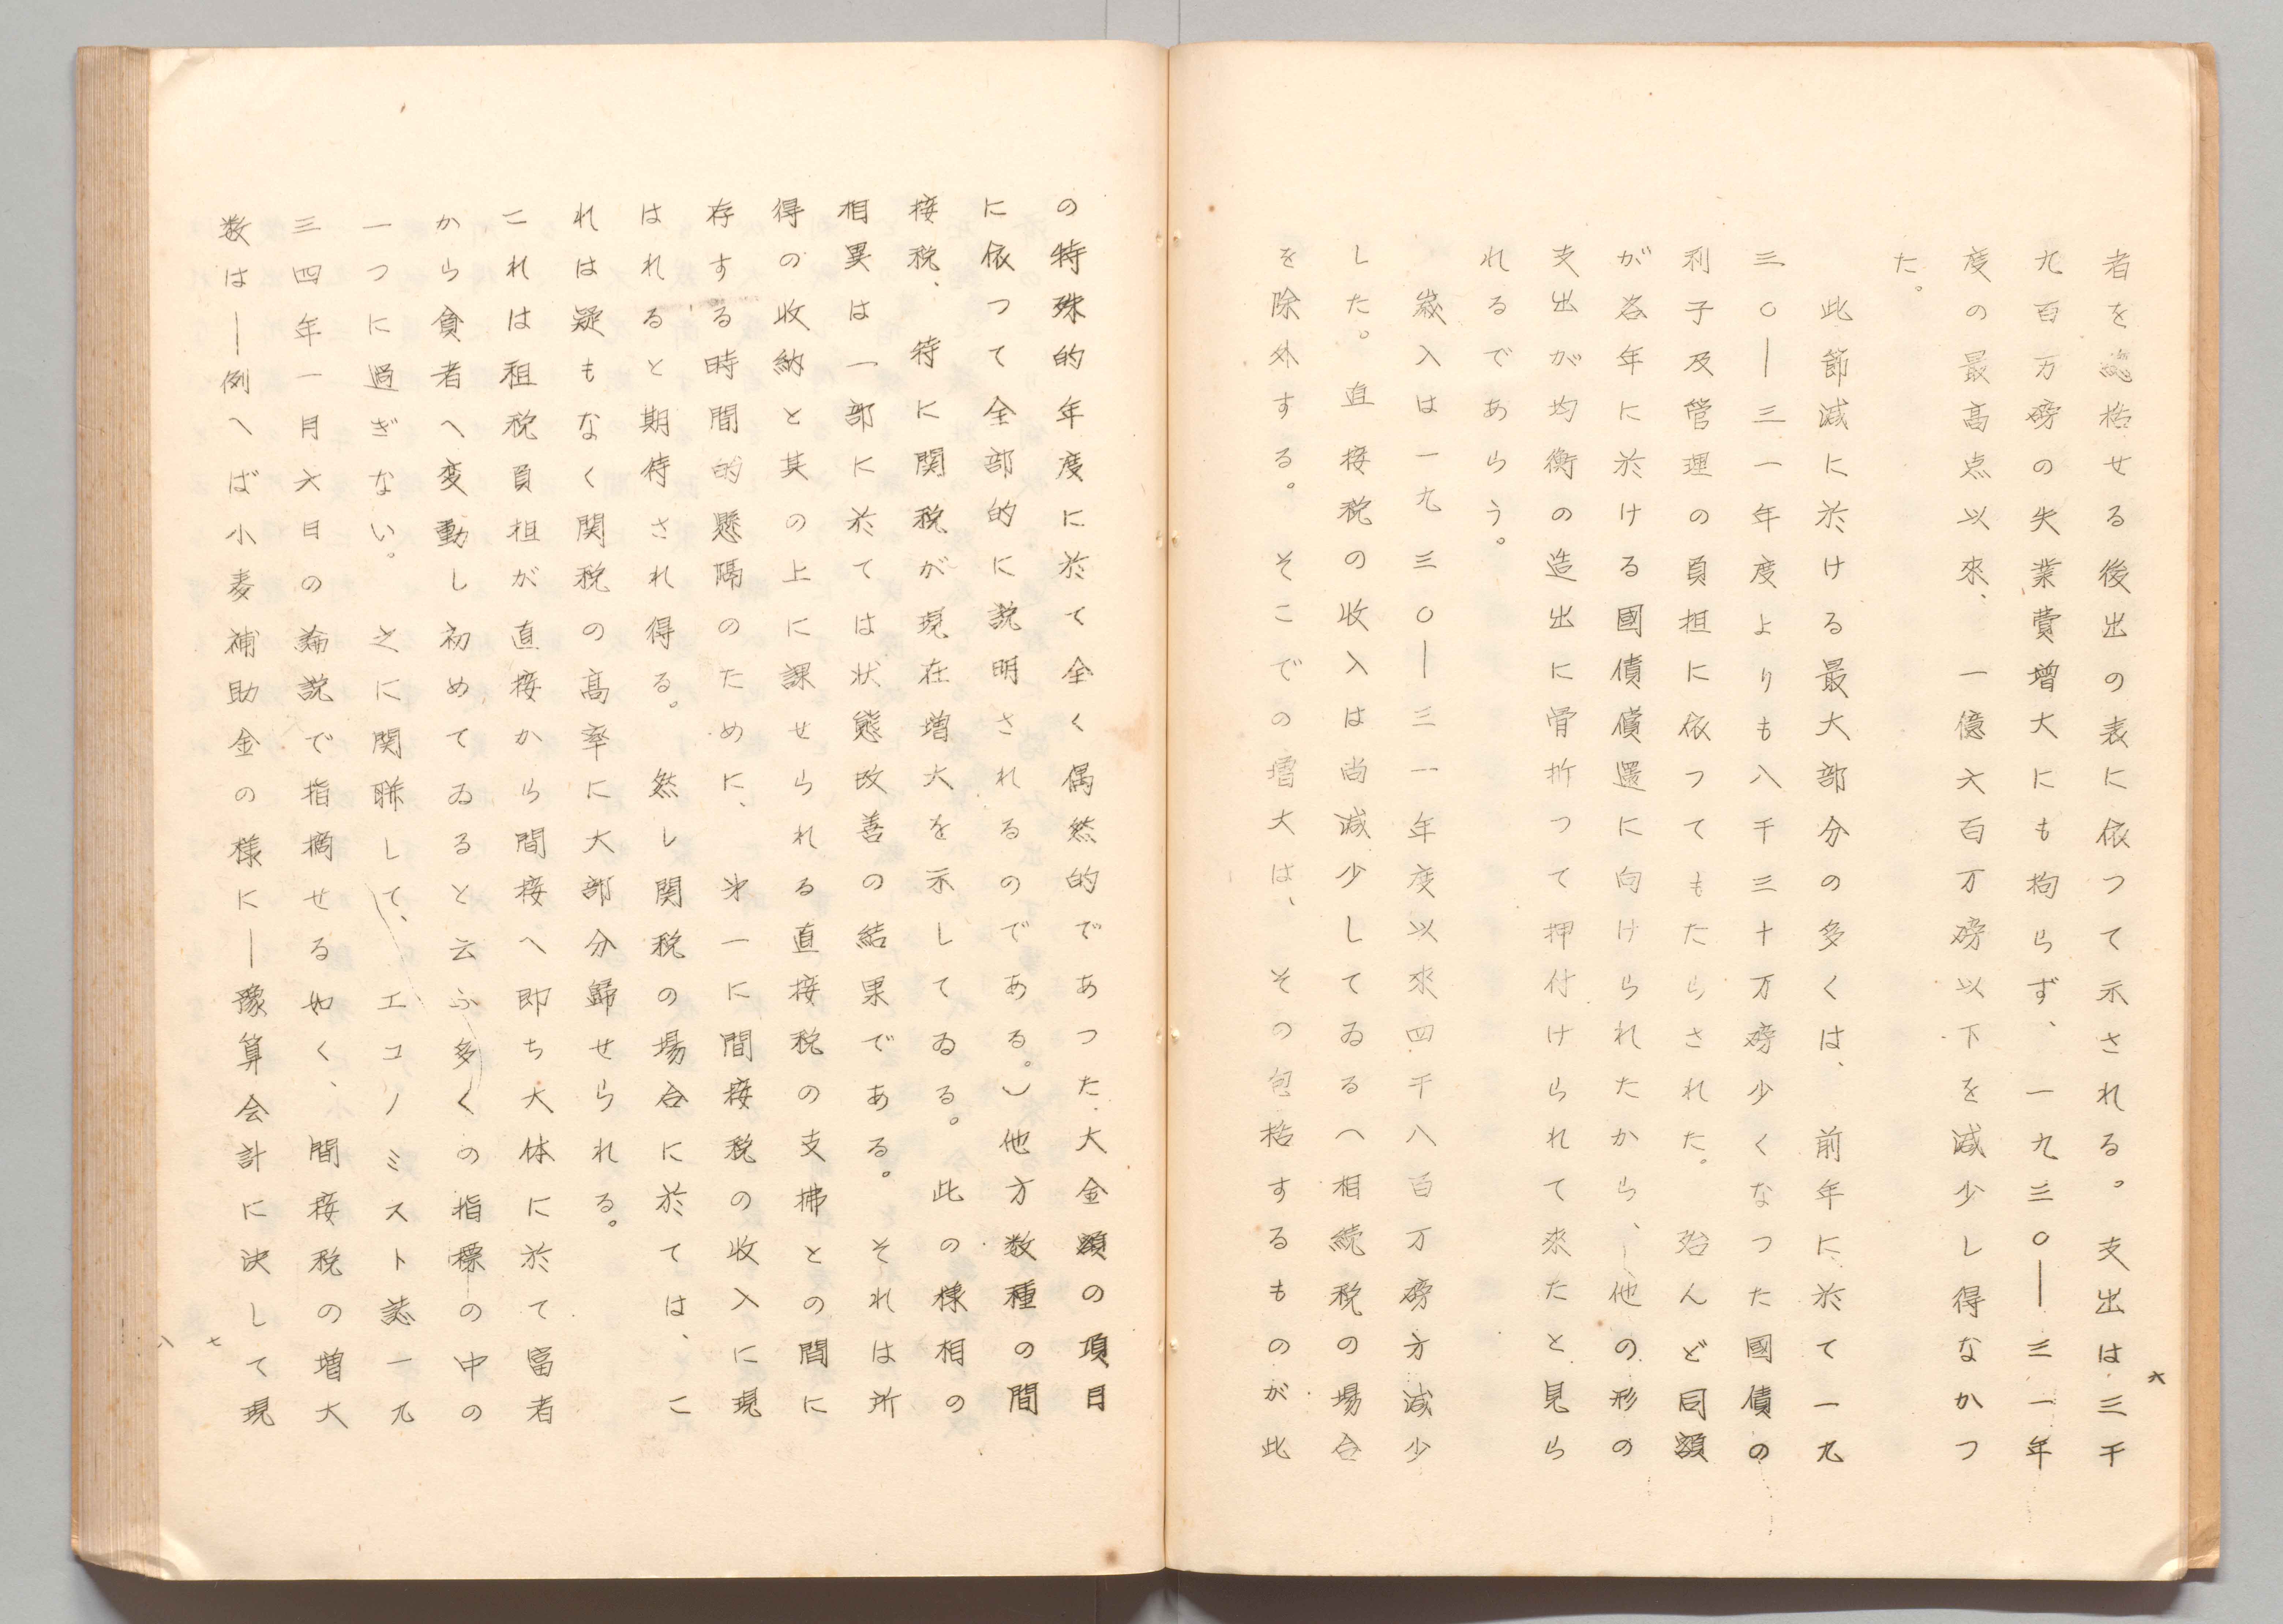 六
者を總括せる後出の表に依つて示される。支出は三千
九百万磅の失業費増大にも拘らず、一九三〇―三一年
度の最高点以來、一億六百万磅以下を減少し得なかつ
た。
此節減に於ける最大部分の多くは、前年に於て一九
三〇―三一年度よりも八千三十万磅少くなつた國債の
利子及管理の負担に依つてもたらされた。殆んど同額
が各年に於ける國債償還に向けられたから、他の形の
支出が均衡の造出に骨折つて押付けられて來たと見ら
れるであらう。
歳入は一九三〇―三一年度以來四千八百万磅方減少
した。直接税の收入は尚減少してゐるへ相続税の場合
を除外する。そこでの増大は、その包括するものが此
の特殊的年度に於て全く偶然的であつた大金額の項目
に依つて全部的に説明されるのである。)他方数種の間
接税、特に関税が現在増大を示してゐる。此の様相の
相異は一部に於ては状態改善の結果である。それは所
得の收納と其の上に課せられる直接税の支拂との間に
存する時間的懸隔のために、第一に間接税の收入に現
はれると期待され得る。然し関税の場合に於ては、こ
れは疑もなく関税の高率に大部分歸せられる。
これは租税負担が直接から間接へ即ち大体に於て富者
から貧者へ変動し初めてゐると云ふ多くの指標の中の
一つに過ぎない。之に関聯して、エコノミスト誌一九
三四年一月六日の論説で指摘せる如く、間接税の増大
数は―例へば小麦補助金の様に―豫算会計に決して現
七
八